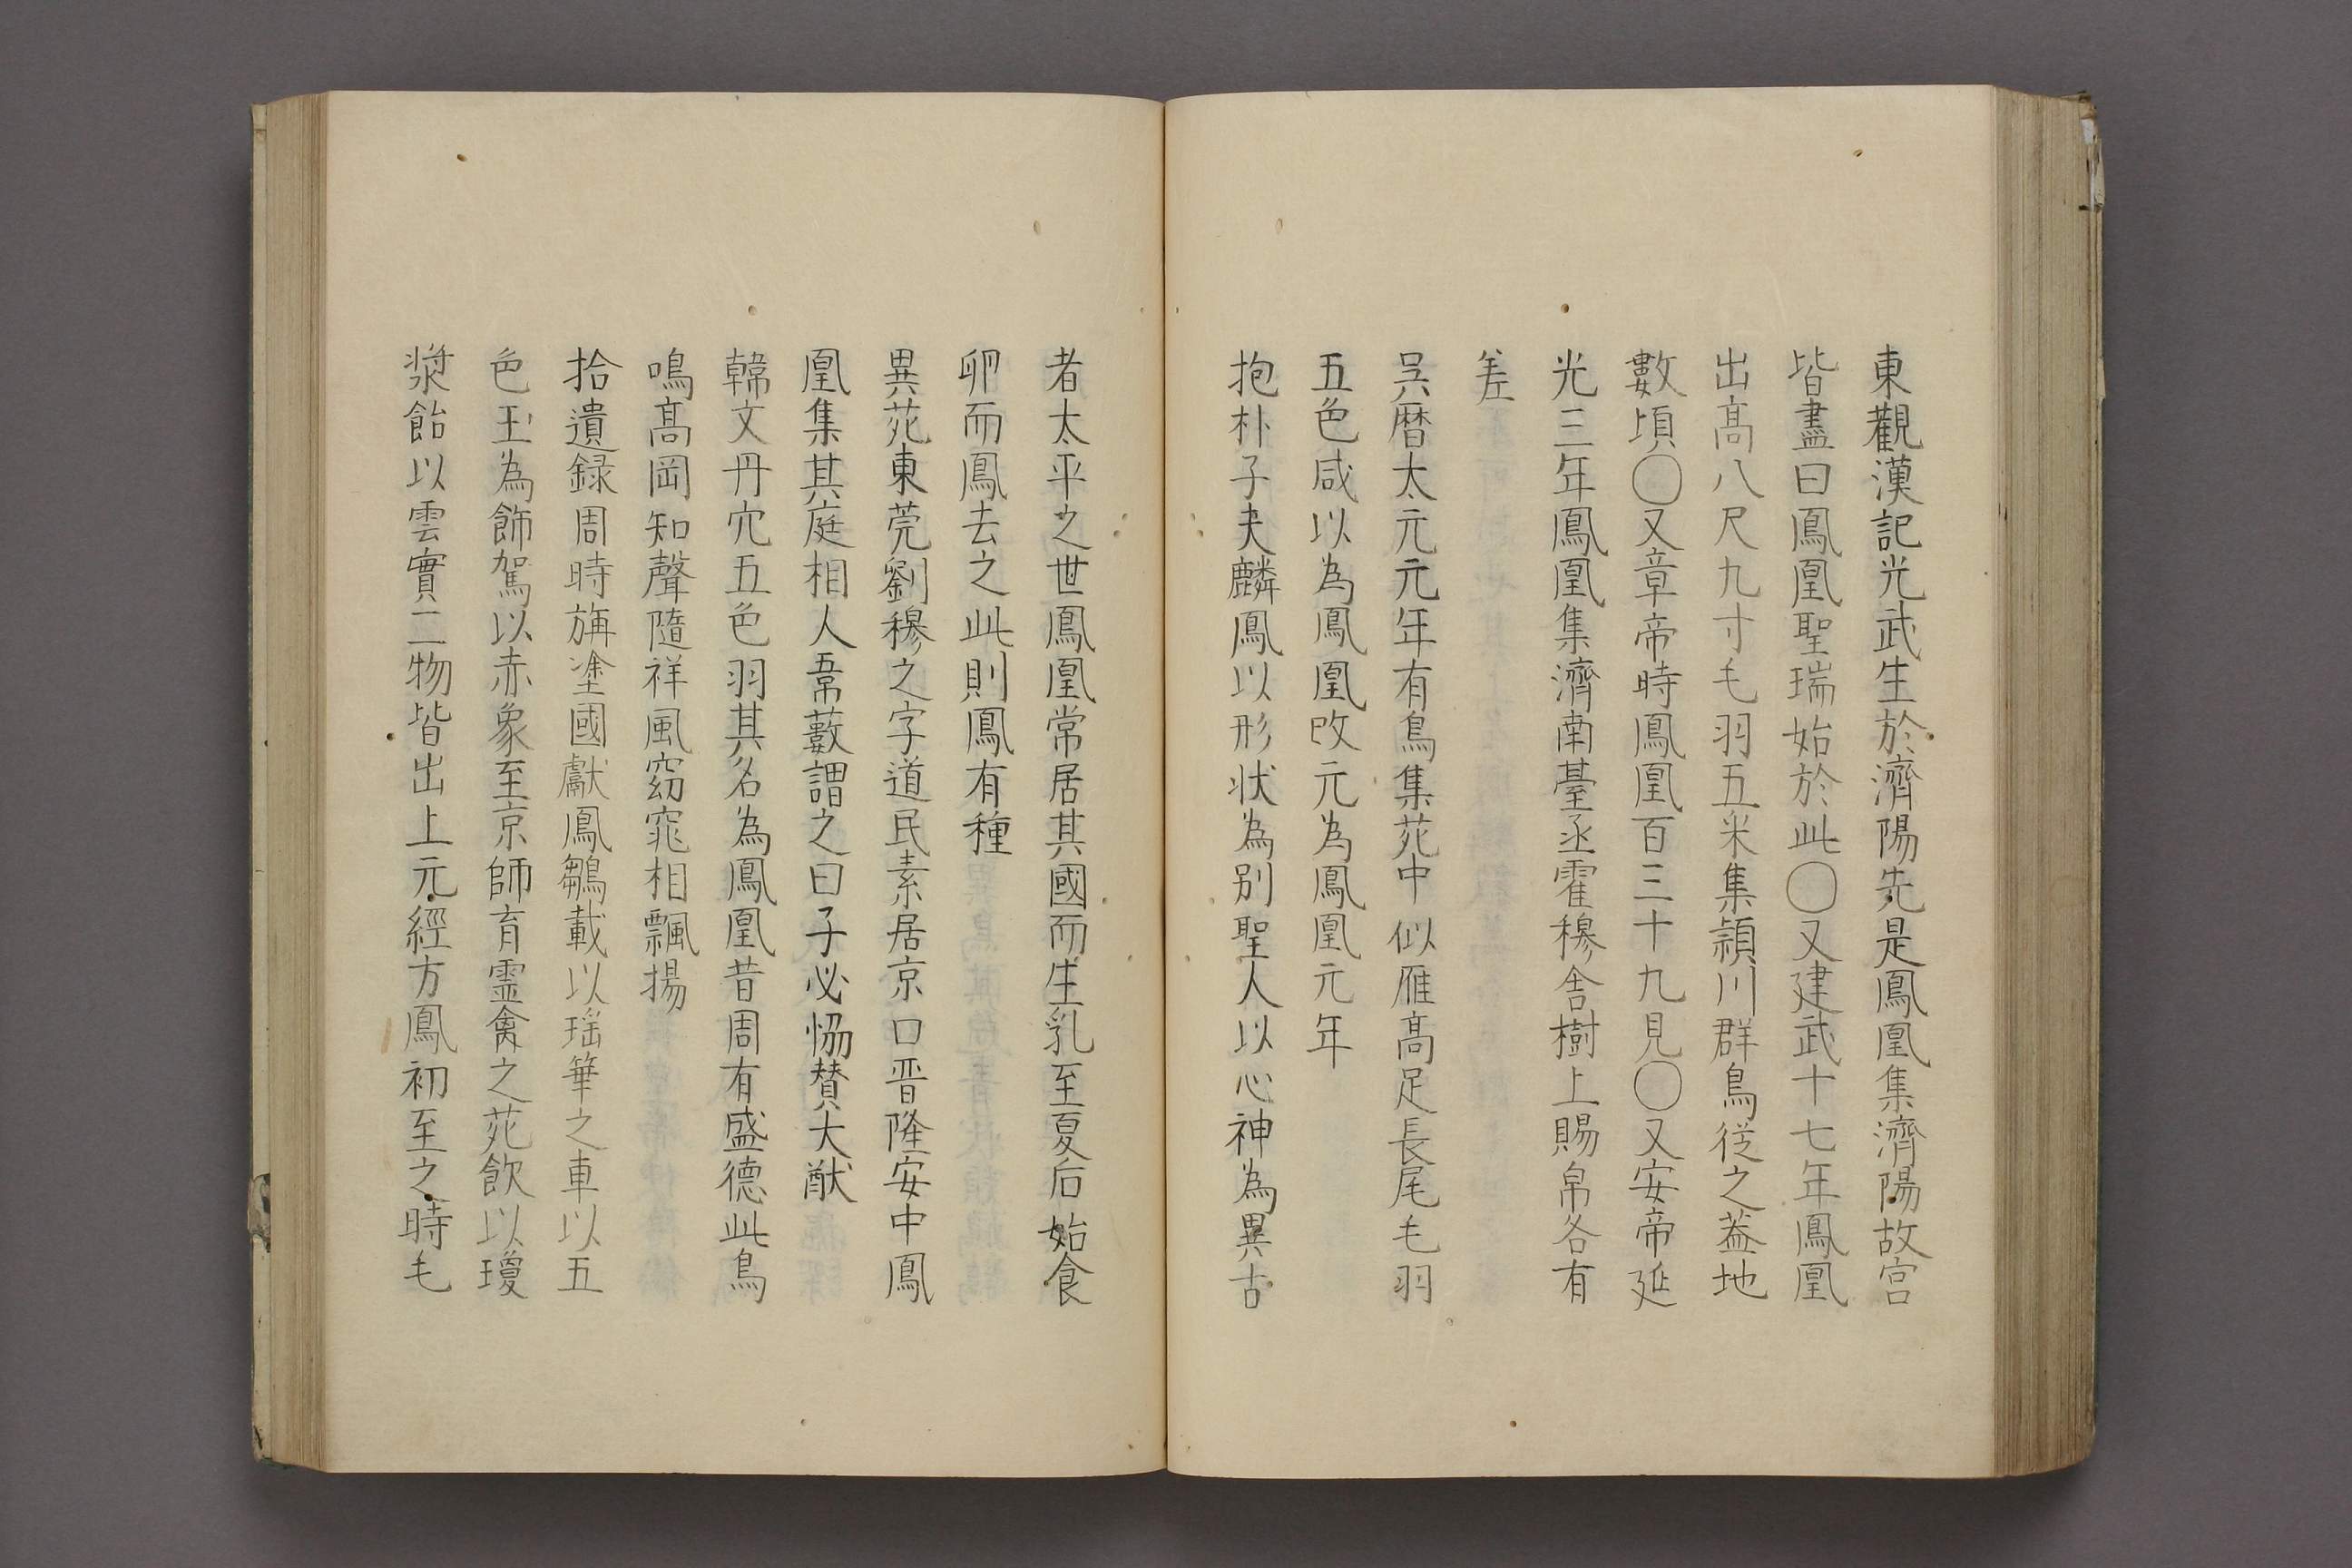 東觀漢記光武生於濟陽先是鳳凰集濟陽故宮
皆畫曰鳳凰聖瑞始於此〇又建武十七年鳳凰
出髙八尺九寸毛羽五米集頴川群鳥從之蓋地
數頃〇又章帝時鳳凰百三十九見〇又安帝延
光三年鳳凰集濟南䑓丞霍穆舎樹上賜帛各有
差
呉暦太元元年有鳥集苑中似雁髙足長尾毛羽
五色咸以為鳳凰改元為鳳凰元年
抱朴子夫麟鳳以形状為别聖人以心神為異古
者太平之世鳳凰常居其國而生乳至夏后始食
卵而鳳去之此則鳳有種
異苑東莞劉穆之字道民素居京口晋隆安中鳳
凰集其庭相人韋藪謂之曰子必恊賛大猷
韓文丹穴五色羽其名為鳳凰昔周有盛德此鳥
鳴髙岡知聲隨祥風窈窕相飄揚
拾遺録周時旃塗國獻鳳鶵載以瑶華之車以五
色玉為飾駕以赤象至京師育霊禽之苑飲以瓊
漿飴以雲實二物皆出上元經方鳳初至之時毛